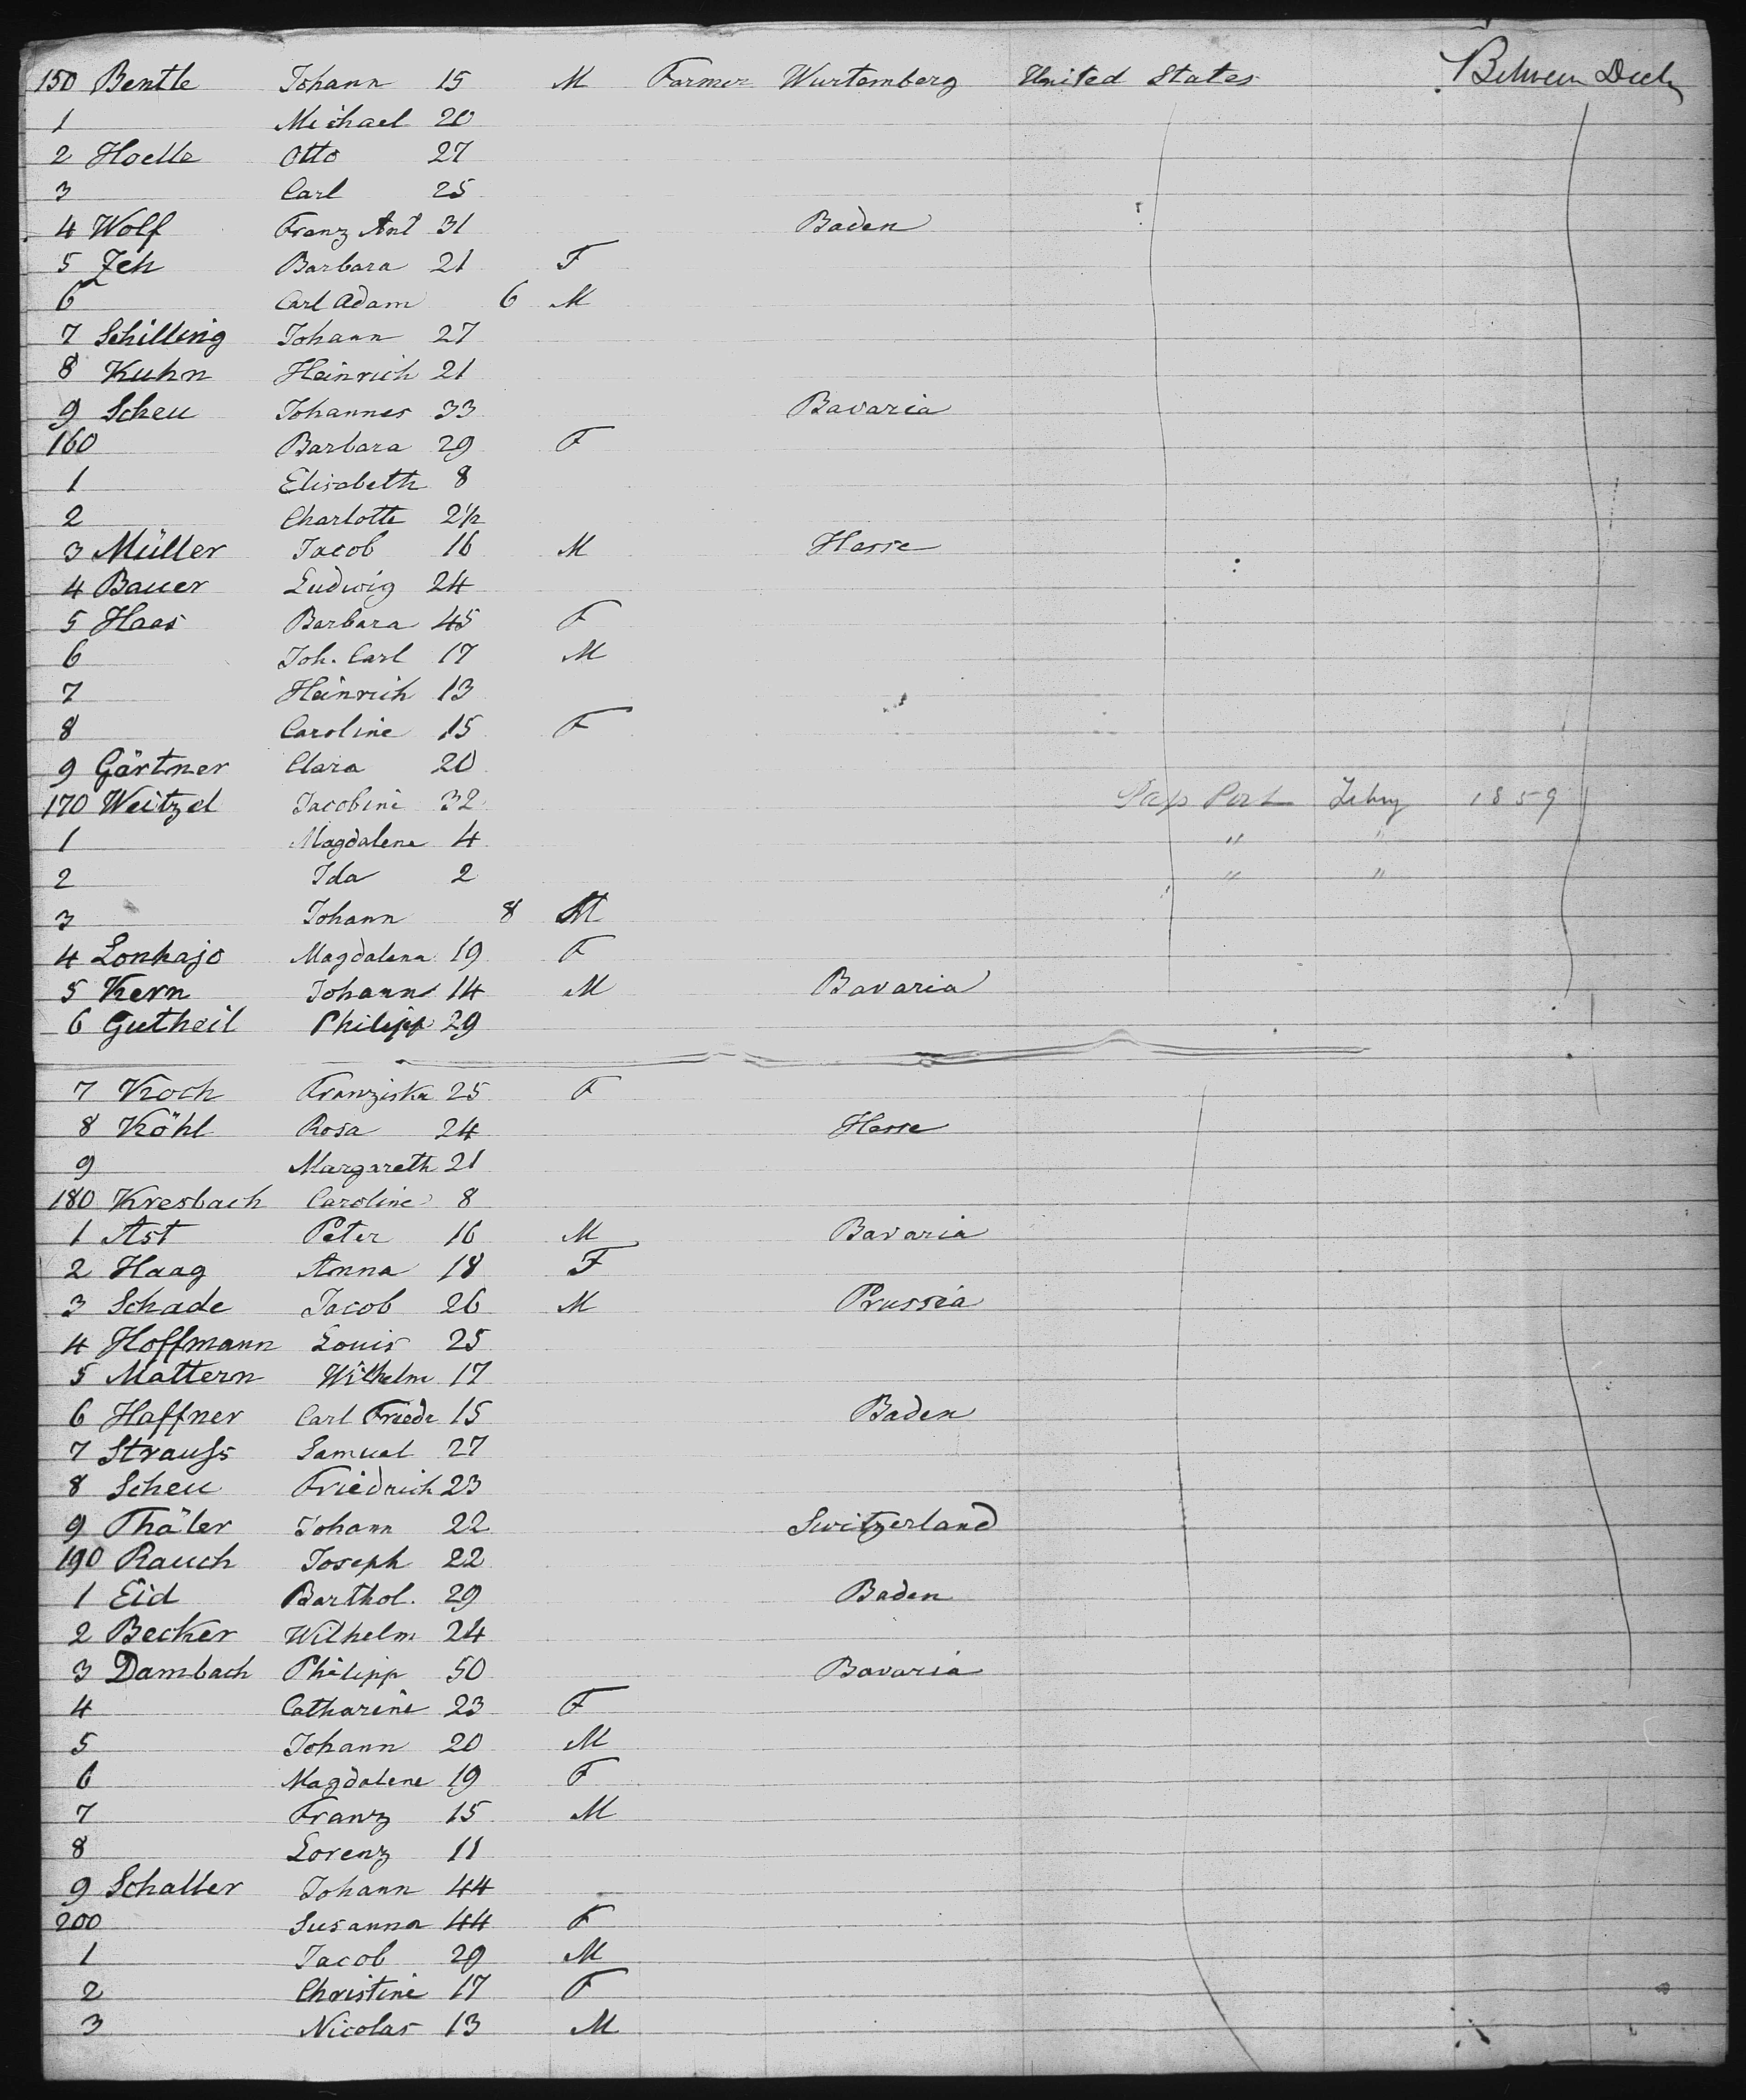 150 Bentle Johann 15 M Farmer Wurtemberg United States Between Decks
1 Michael 20
2 Hoelle Otto 27
3 Carl 25
4 Wolf Franz Ant 31 Baden
5 Zeh Barbara 21 F
6 Carl Adam 6 M
7 Schilling Johann 27
8 Kuhn Heinrich 21
9 Scheu Johannes 33 Bavaria
160 Barbara 29 F
1 Elisabeth 8
2 Charlotte 2½
3 Müller Jacob 16 M Hesse
4 Bauer Ludwig 24
5 Haas Barbara 45 F
6 Joh. Carl 17 M
7 Heinrich 13
8 Caroline 15 F
9 Gärtner Clara 20
170 Weitzel Jacobine 32 Pass Port Febry 1859
1 Magdalene 4 " "
2 Ida 2 " "
3 Johann 8 M
4 Lonhajo Magdalena 19 F
5 Kern Johann 14 M Bavaria
6 Gutheil Philipp 29
7 Koch Franziska 25 F
8 Köhl Rosa 24 Hesse
9 Margareth 21
180 Kresbach Caroline 8
1 Ast Peter 16 M Bavaria
2 Haag Anna 18 F
3 Schade Jacob 26 M Prussia
4 Hoffmann Louis 25
5 Mattern Wilhelm 17
6 Haffner Carl Friedr 15 Baden
7 Strauss Samuel 27
8 Scheu Friedrich 23
9 Thäler Johann 22 Switzerland
190 Rauch Joseph 22
1 Eid Barthol. 29 Baden
2 Becker Wilhelm 24
3 Dambach Philipp 50 Bavaria
4 Catharine 23 F
5 Johann 20 M
6 Magdalene 19 F
7 Franz 15 M
8 Lorenz 11
9 Schaller Johann 44
200 Susanna 44 F
1 Jacob 29 M
2 Christine 17 F
3 Nicolas 13 M